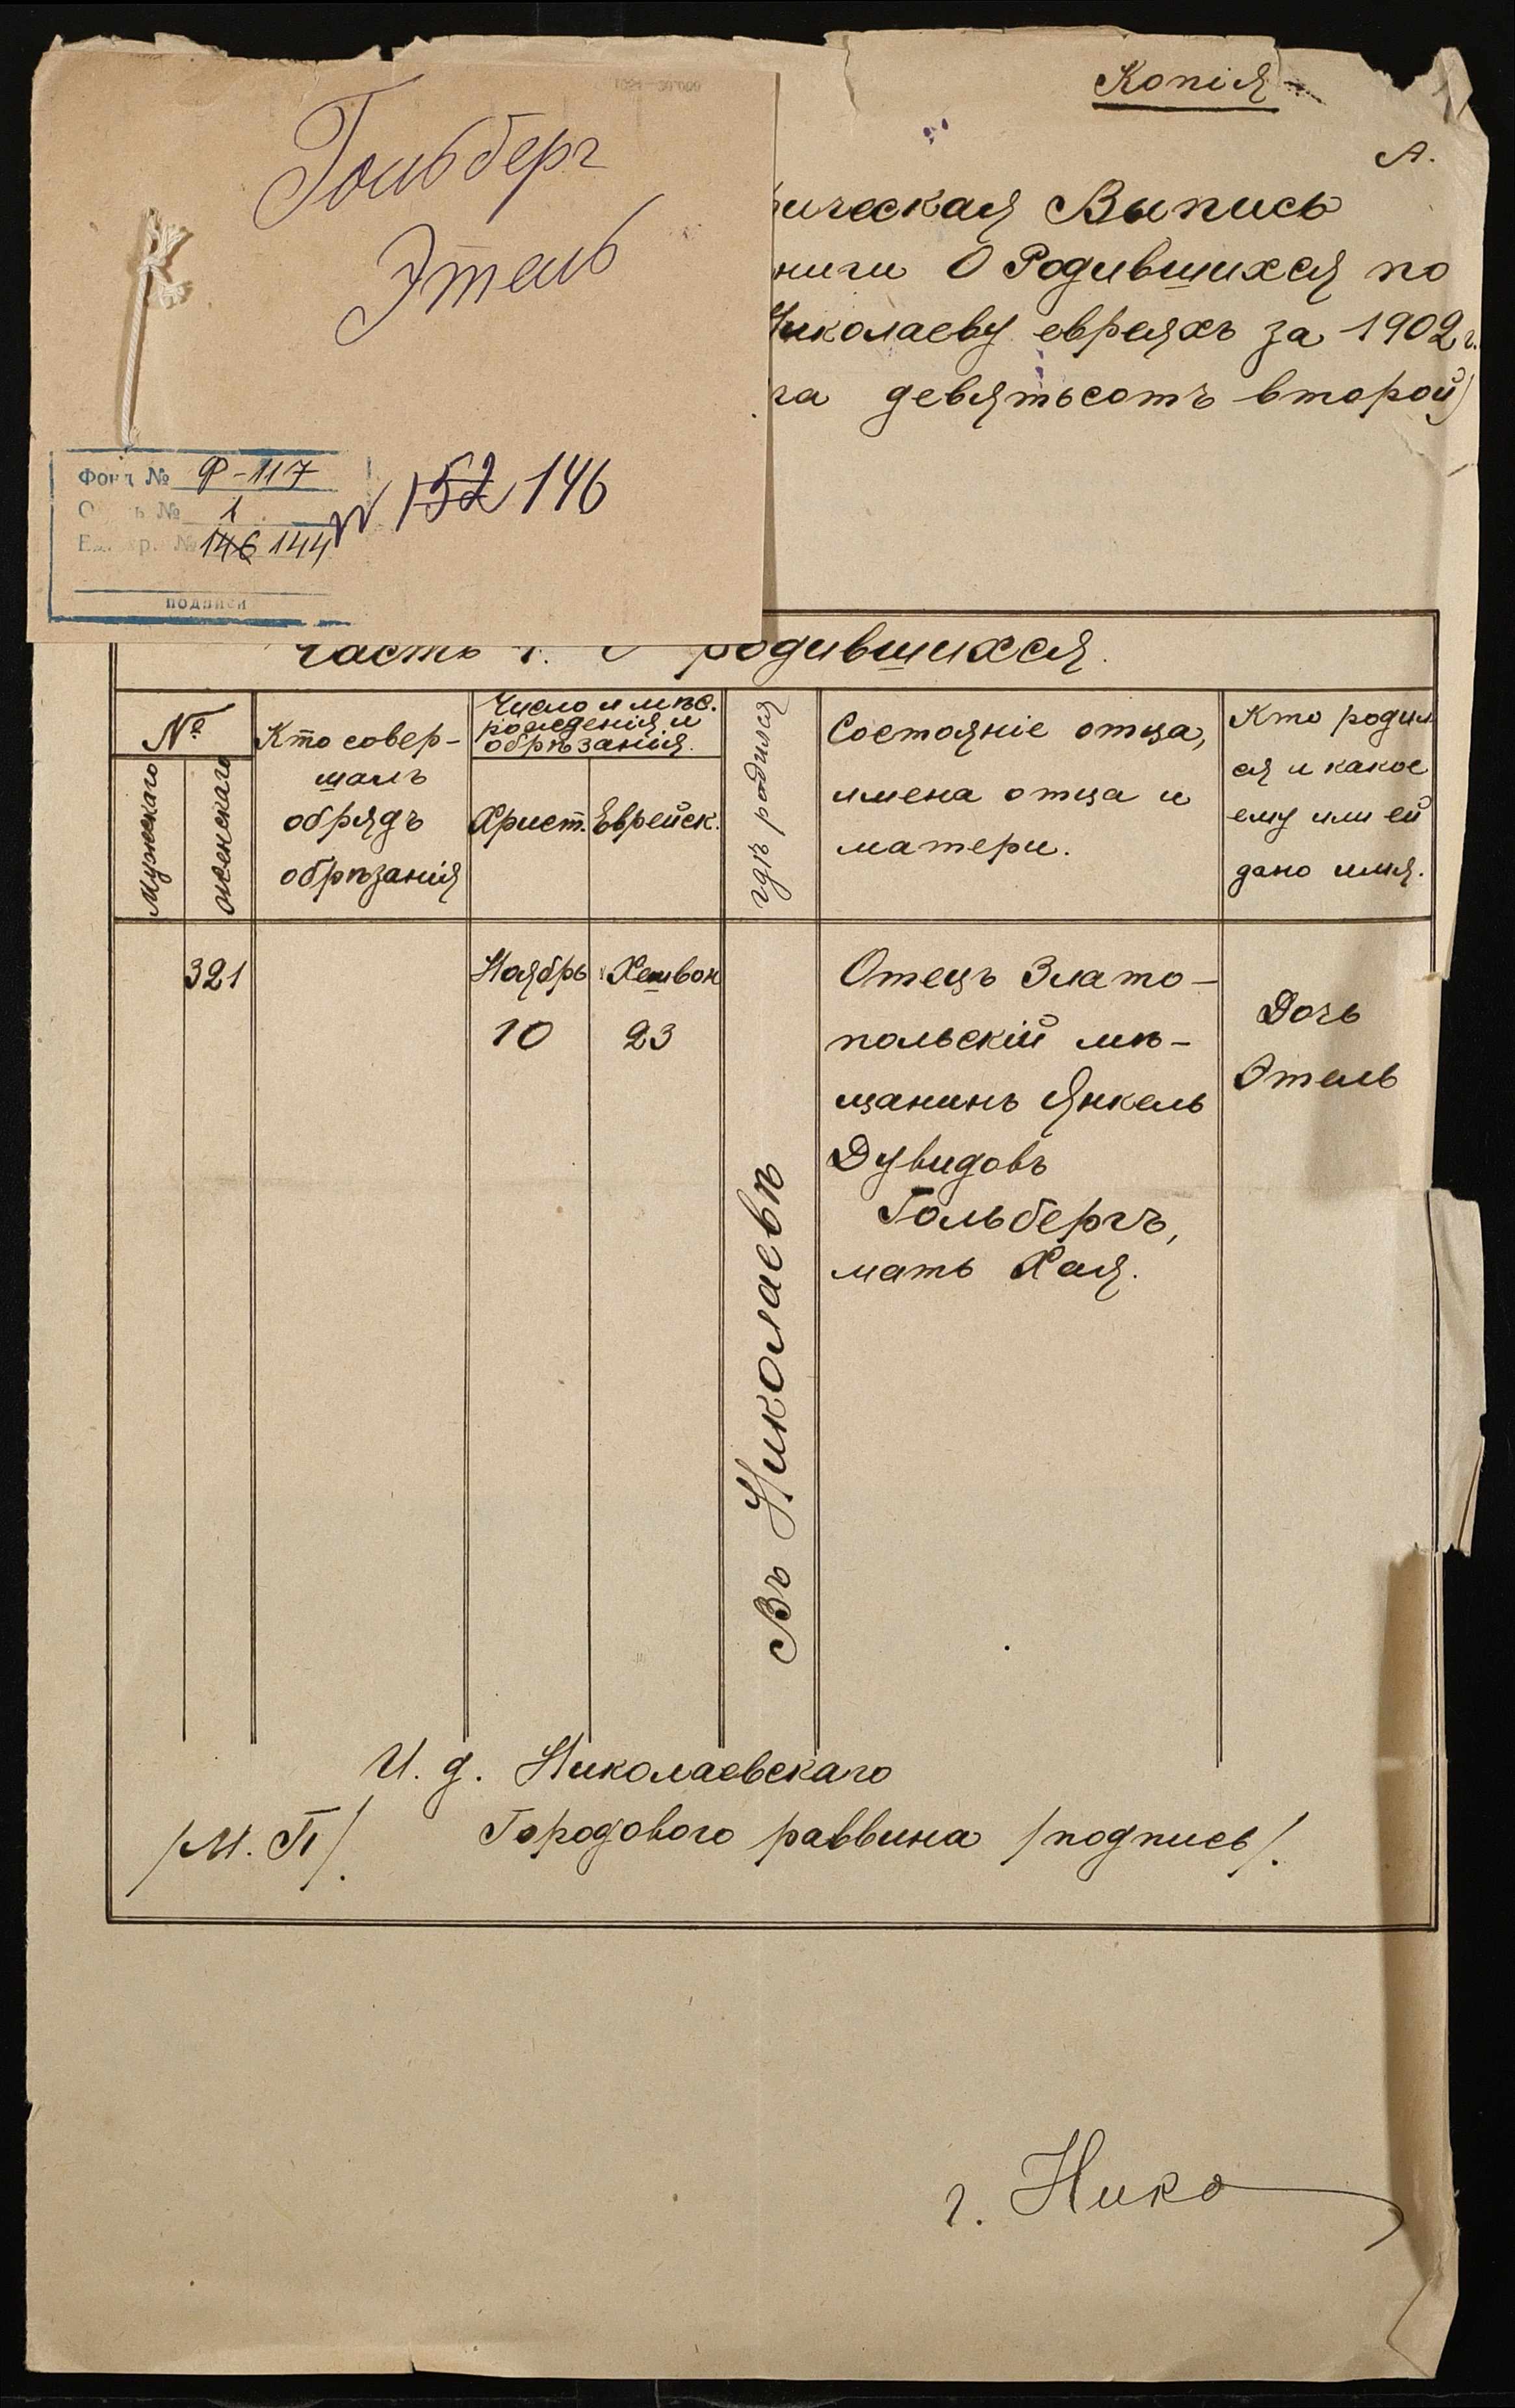 Гольберг
Этель
Фонд № Ф-117
Опись № 1
Ед. хр. № 146 144
подписи
№ 152 146
Копія
А.
ическая Выпись
ниги О Родившихся по
Николаеву евреяхъ за 1902 г.
ча девятьсотъ второй)
Часть 1. О родившихся.
№
Мужскаго
женскаго
Кто совер-
шалъ
обрядъ
обрѣзанія
Число и мѣс.
рожденія и
обрѣзанія.
Христ.
Еврейск.
гдѣ родился
Состояніе отца,
имена отца и
матери.
Кто родил
ся и какое
ему или ей
дано имя.
321
Ноябрь
10
Хешвон
23
Въ Николаевѣ
Отецъ Злато-
польскій мѣ-
щанинъ Янкель
Дувидовъ
Гольбергъ,
мать Хая.
Дочь
Этель
И. д. Николаевскаго
/М. П/. Городового раввина /подпись/.
г. Нико